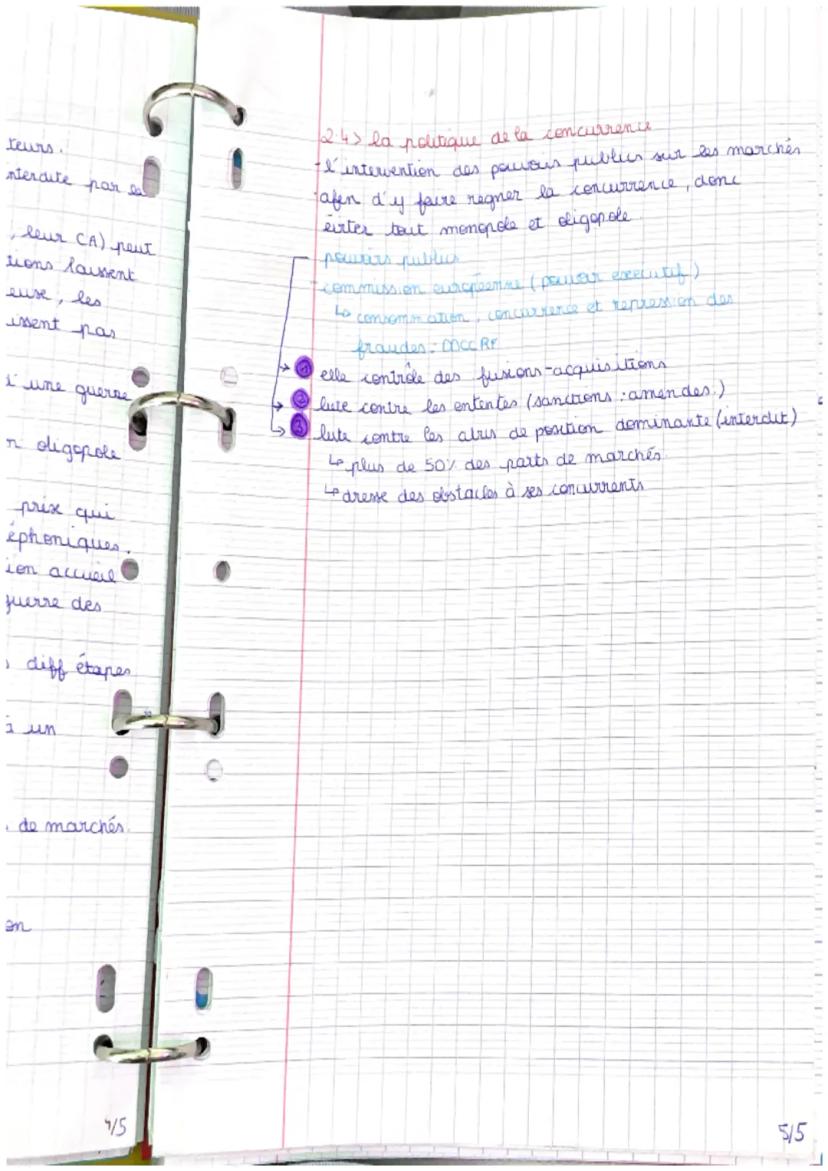 teurs.
nterdite par la
, leur CA) peut
tions laissent
euse, les
issent pas
d'une guerre
n oligopole
prix qui
éphoniques.
ion accueil
guerre des
s diff étapes
à un
. de marchés.
en
4/5
2.4> la politique de la concurrence
-l'intervention des pouvoirs publics sur les marchés
afin d'y faire regner la concurrence, donc
éviter tout monopole et oligopole
pouvoirs publics
-commission européenne (pouvoir executif)
↳ consommation, concurrence et repression des
fraudes: DGCCRF
→ ① elle contrôle des fusions-acquisitions
→ ② lute contre les ententes (sanctions: amendes.)
→ ③ lute contre les abus de position dominante (interdit)
↳ plus de 50% des parts de marchés
↳ dresse des obstacles à ses concurrents
5/5